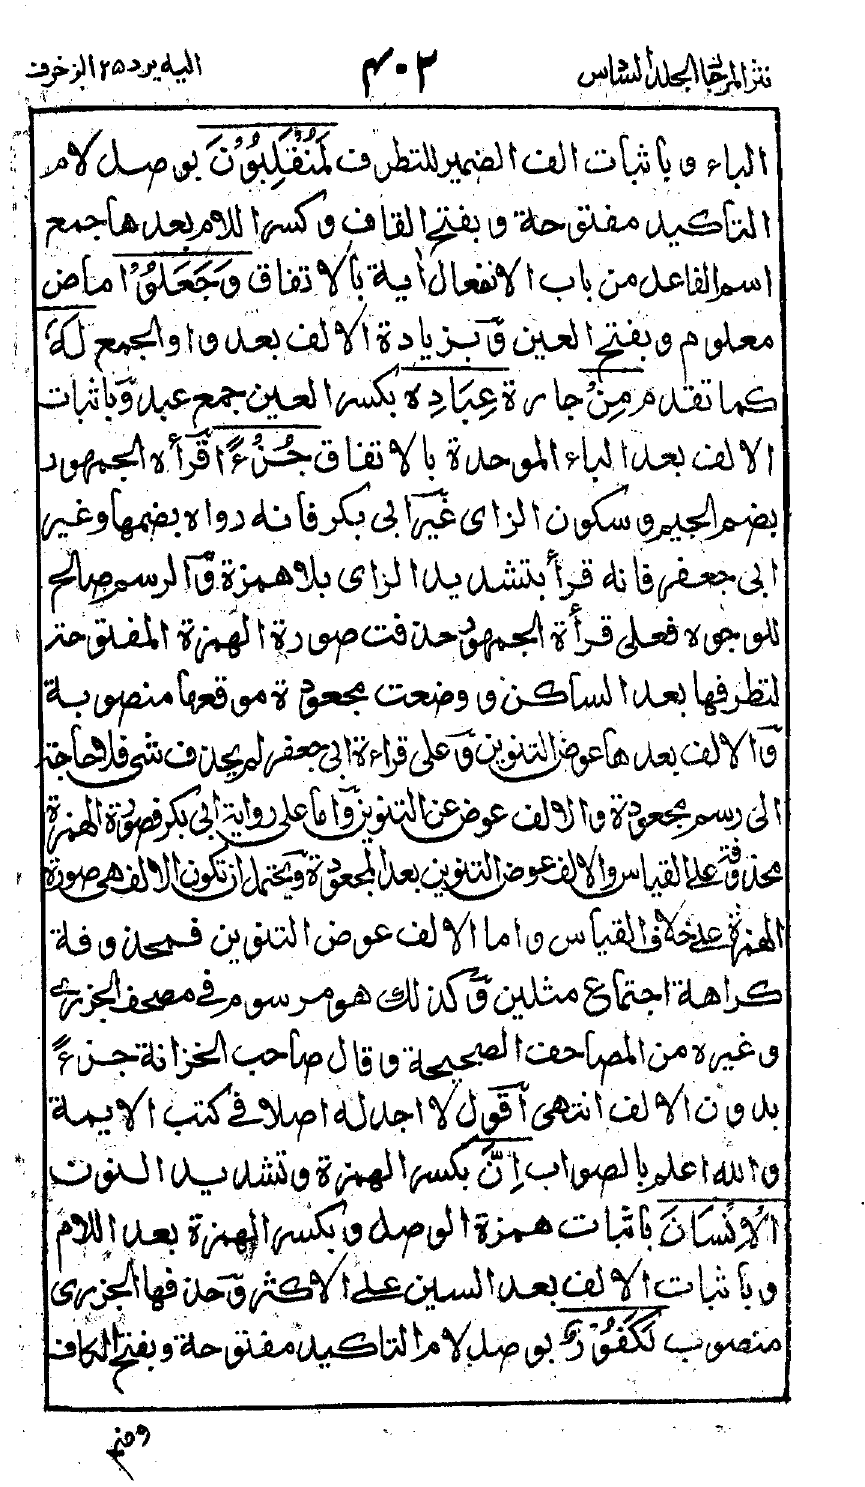 نثر المرجان الجلد السادس ٤٠٢ اليه يرد ٢٥ الزخرف
الباء وباثبات الف الضمير للتطرف لَمُنْقَلِبُوْنَ بوصل لام
التاكيد مفتوحة وبفتح القاف وكسر اللام بعدها جمع
اسم الفاعل من باب الانفعال اٰية بالاتفاق وَجَعَلُوْا ماض
معلوم وبفتح العين وبزيادة الالف بعد واو الجمع لَهٗ
كما تقدم مِنْ جارة عِبَادِهٖ بكسر العين جمع عبد وباثبات
الالف بعد الباء الموحدة بالاتفاق جُزْءًا قرأه الجمهور
بضم الجيم وسكون الزاى غير ابى بكر فانه رواه بضمها وغير
ابى جعفر فانه قرأ بتشديد الزاى بلا همزة والرسم صالح
للوجوه فعلى قرأة الجمهور حذفت صورة الهمزة المفتوحة
لتطرفها بعد الساكن ووضعت مجعودة موقعها منصوبة
والالف بعدها عوض التنوين وعلى قراءة ابى جعفر لم يحذف شئ فلا حاجة
الى رسم مجعودة والالف عوض عن التنوين واما على رواية ابى بكر فصورة الهمزة
محذوفة على القياس والالف عوض التنوين بعد المجعودة ويحتمل ان تكون الالف هى صورة
الهمزة على خلاف القياس واما الالف عوض التنوين فمحذوفة
كراهة اجتماع مثلين وكذلك هو مرسوم في مصحف الجزرى
وغيره من المصاحف الصحيحة وقال صاحب الخزانة جزءً
بدون الالف انتهى اقول لا اجد له اصلا في كتب الايمة
والله اعلم بالصواب اِنَّ بكسر الهمزة وتشديد النون
الْاِنْسَانَ باثبات همزة الوصل وبكسر الهمزة بعد اللام
وباثبات الالف بعد السين على الاكثر وحذفها الجزرى
منصوب لَكَفُوْرٌ بوصل لام التاكيد مفتوحة وبفتح الكاف
وضم